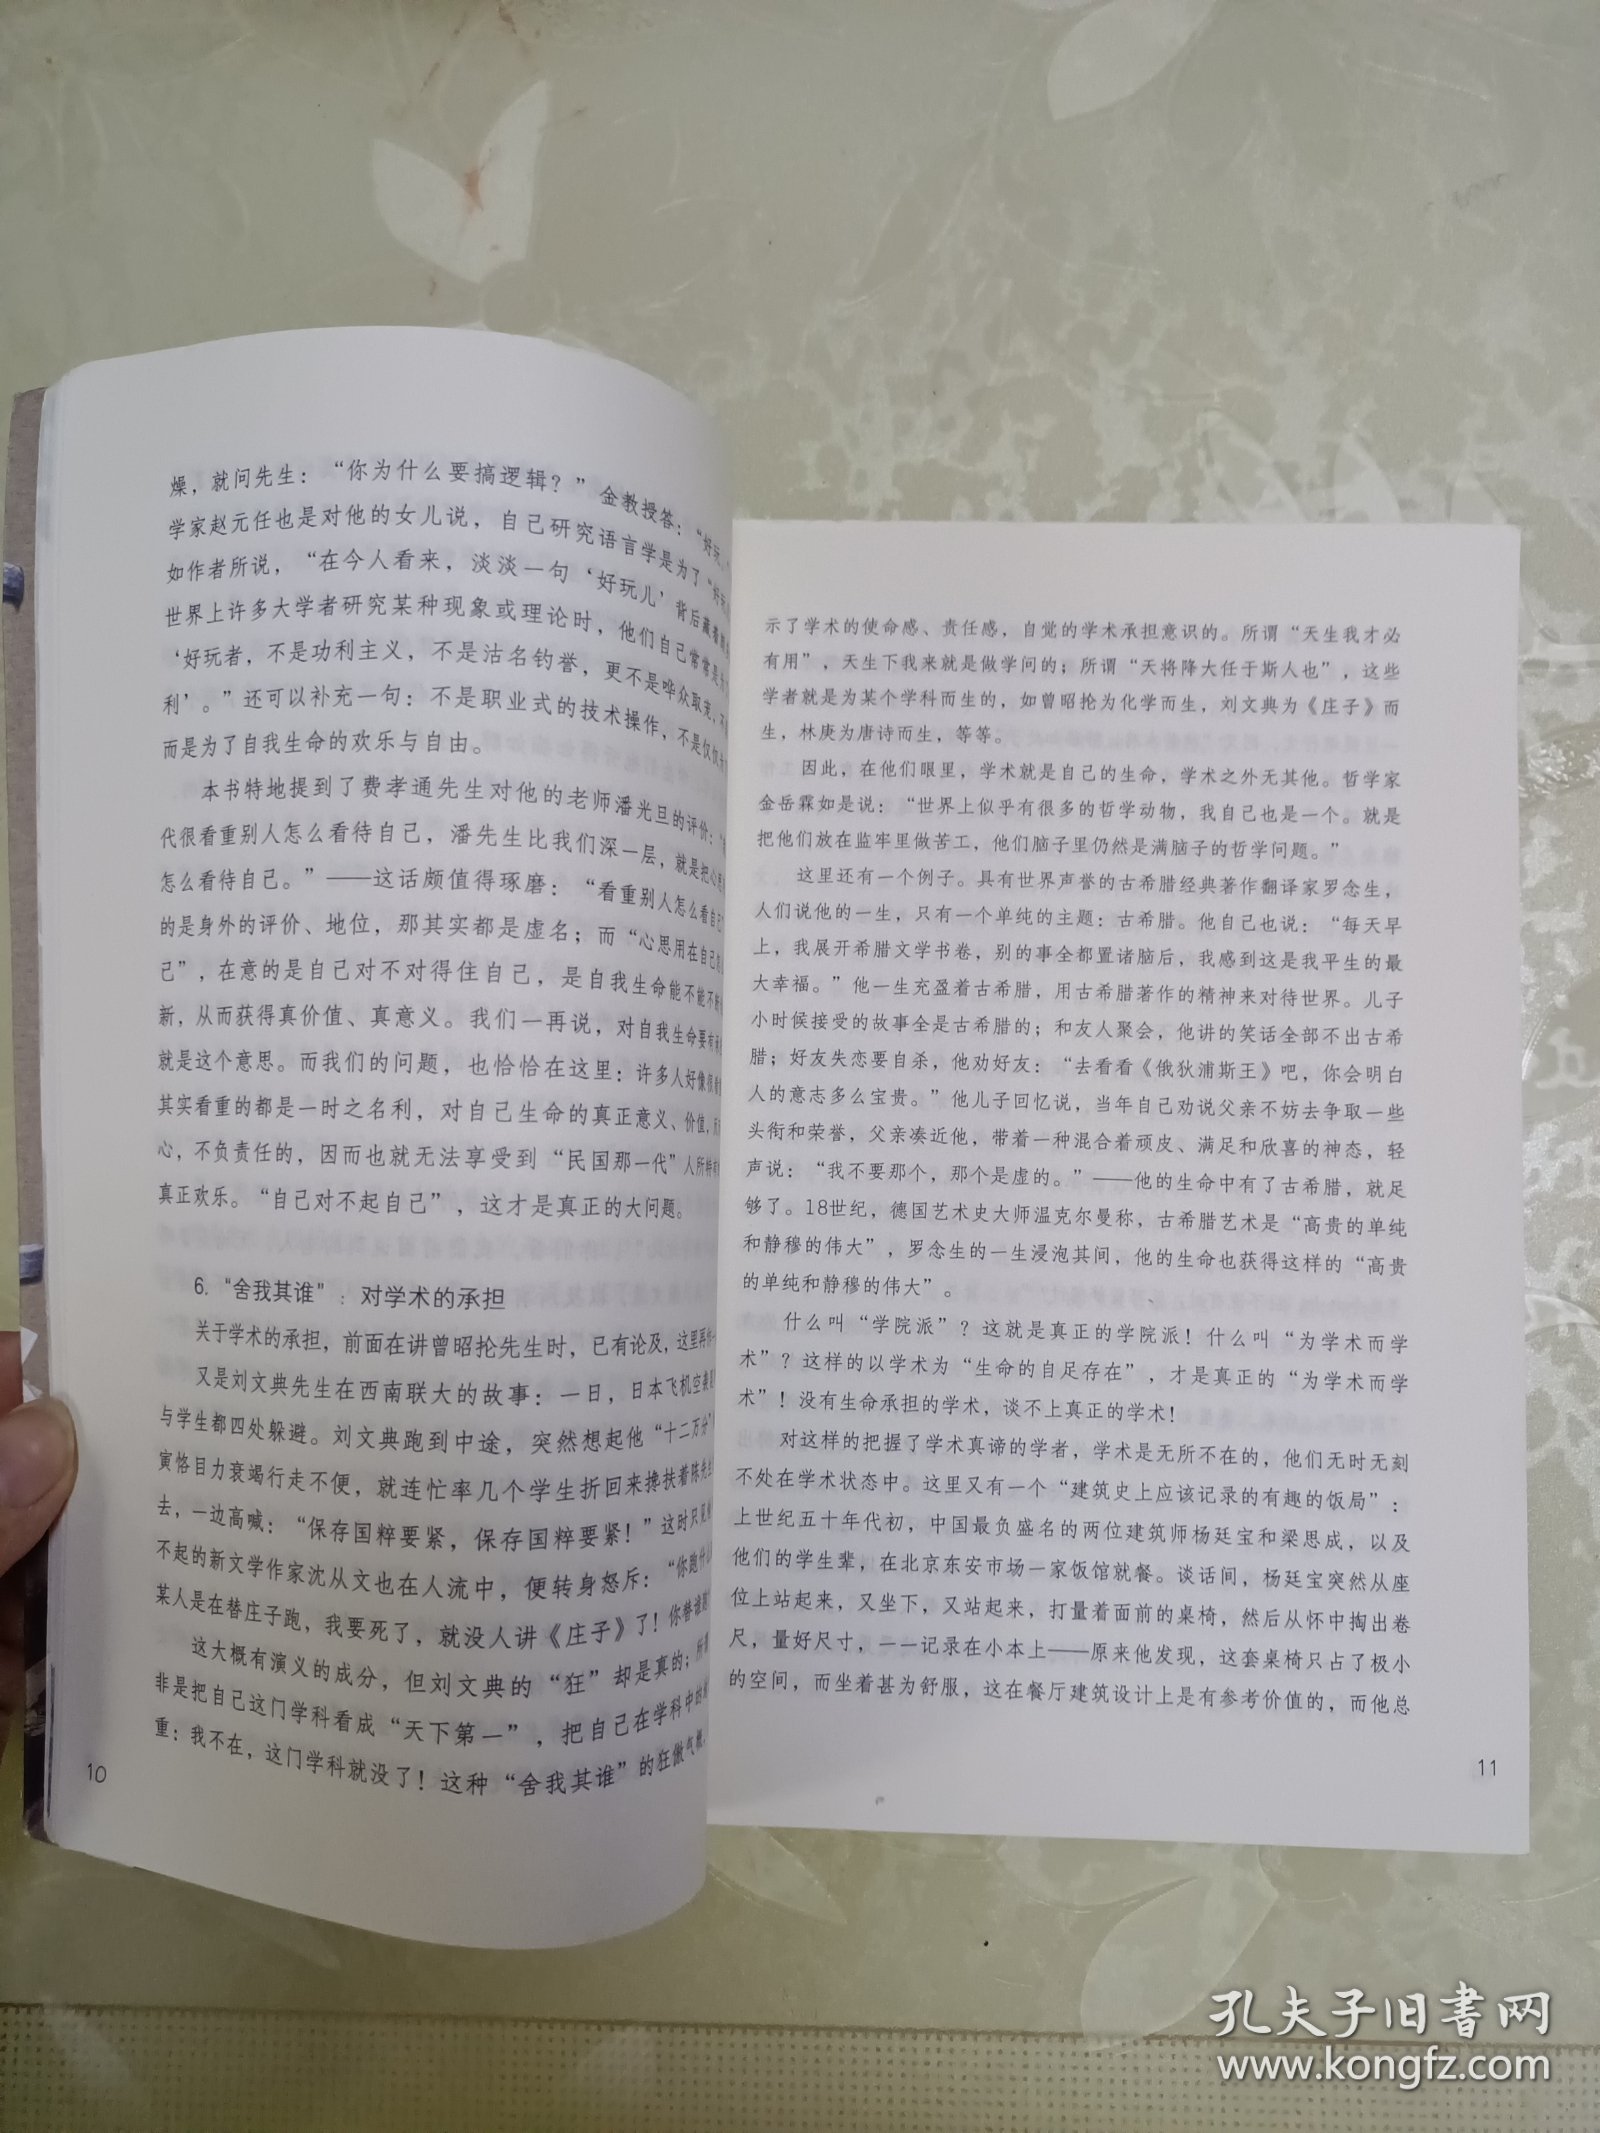 燥，就问先生：“你为什么要搞逻辑？”金教授答：“好玩。
学家赵元任也是对他的女儿说，自己研究语言学是为了“好玩
如作者所说，“在今人看来，淡淡一句‘好玩儿’背后藏着
世界上许多大学者研究某种现象或理论时，他们自己常常是
‘好玩者，不是功利主义，不是沽名钓誉，更不是哗众取宠，不
利’。”还可以补充一句：不是职业式的技术操作，不是仅仅
而是为了自我生命的欢乐与自由。
本书特地提到了费孝通先生对他的老师潘光旦的评价：“
代很看重别人怎么看待自己，潘先生比我们深一层，就是把心思
怎么看待自己。”——这话颇值得琢磨：“看重别人怎么看自己
的是身外的评价、地位，那其实都是虚名；而“心思用在自己
己”，在意的是自己对不对得住自己，是自我生命能不能不断
新，从而获得真价值、真意义。我们一再说，对自我生命要有承
就是这个意思。而我们的问题，也恰恰在这里：许多人好像很看
其实看重的都是一时之名利，对自己生命的真正意义、价值，
心，不负责任的，因而也就无法享受到“民国那一代”人所特有
真正欢乐。“自己对不起自己”，这才是真正的大问题。
6. “舍我其谁”：对学术的承担
关于学术的承担，前面在讲曾昭抡先生时，已有论及，这里再
又是刘文典先生在西南联大的故事：一日，日本飞机空袭
与学生都四处躲避。刘文典跑到中途，突然想起他“十二万分”
寅恪目力衰竭行走不便，就连忙率几个学生折回来搀扶着陈先生
去，一边高喊：“保存国粹要紧，保存国粹要紧！”这时只见
不起的新文学作家沈从文也在人流中，便转身怒斥：“你跑什么
某人是在替庄子跑，我要死了，就没人讲《庄子》了！你替谁跑
这大概有演义的成分，但刘文典的“狂”却是真的；所谓
非是把自己这门学科看成“天下第一”，把自己在学科中的
重：我不在，这门学科就没了！这种“舍我其谁”的狂傲气概，
10
示了学术的使命感、责任感，自觉的学术承担意识的。所谓“天生我才必
有用”，天生下我来就是做学问的；所谓“天将降大任于斯人也”，这些
学者就是为某个学科而生的，如曾昭抡为化学而生，刘文典为《庄子》而
生，林庚为唐诗而生，等等。
因此，在他们眼里，学术就是自己的生命，学术之外无其他。哲学家
金岳霖如是说：“世界上似乎有很多的哲学动物，我自己也是一个。就是
把他们放在监牢里做苦工，他们脑子里仍然是满脑子的哲学问题。”
这里还有一个例子。具有世界声誉的古希腊经典著作翻译家罗念生，
人们说他的一生，只有一个单纯的主题：古希腊。他自己也说：“每天早
上，我展开希腊文学书卷，别的事全都置诸脑后，我感到这是我平生的最
大幸福。”他一生充盈着古希腊，用古希腊著作的精神来对待世界。儿子
小时候接受的故事全是古希腊的；和友人聚会，他讲的笑话全部不出古希
腊；好友失恋要自杀，他劝好友：“去看看《俄狄浦斯王》吧，你会明白
人的意志多么宝贵。”他儿子回忆说，当年自己劝说父亲不妨去争取一些
头衔和荣誉，父亲凑近他，带着一种混合着顽皮、满足和欣喜的神态，轻
声说：“我不要那个，那个是虚的。”——他的生命中有了古希腊，就足
够了。18世纪，德国艺术史大师温克尔曼称，古希腊艺术是“高贵的单纯
和静穆的伟大”，罗念生的一生浸泡其间，他的生命也获得这样的“高贵
的单纯和静穆的伟大”。
什么叫“学院派”？这就是真正的学院派！什么叫“为学术而学
术”？这样的以学术为“生命的自足存在”，才是真正的“为学术而学
术”！没有生命承担的学术，谈不上真正的学术！
对这样的把握了学术真谛的学者，学术是无所不在的，他们无时无刻
不处在学术状态中。这里又有一个“建筑史上应该记录的有趣的饭局”：
上世纪五十年代初，中国最负盛名的两位建筑师杨廷宝和梁思成，以及
他们的学生辈，在北京东安市场一家饭馆就餐。谈话间，杨廷宝突然从座
位上站起来，又坐下，又站起来，打量着面前的桌椅，然后从怀中掏出卷
尺，量好尺寸，一一记录在小本上——原来他发现，这套桌椅只占了极小
的空间，而坐着甚为舒服，这在餐厅建筑设计上是有参考价值的，而他总
11
孔夫子旧书网
www.kongfz.com